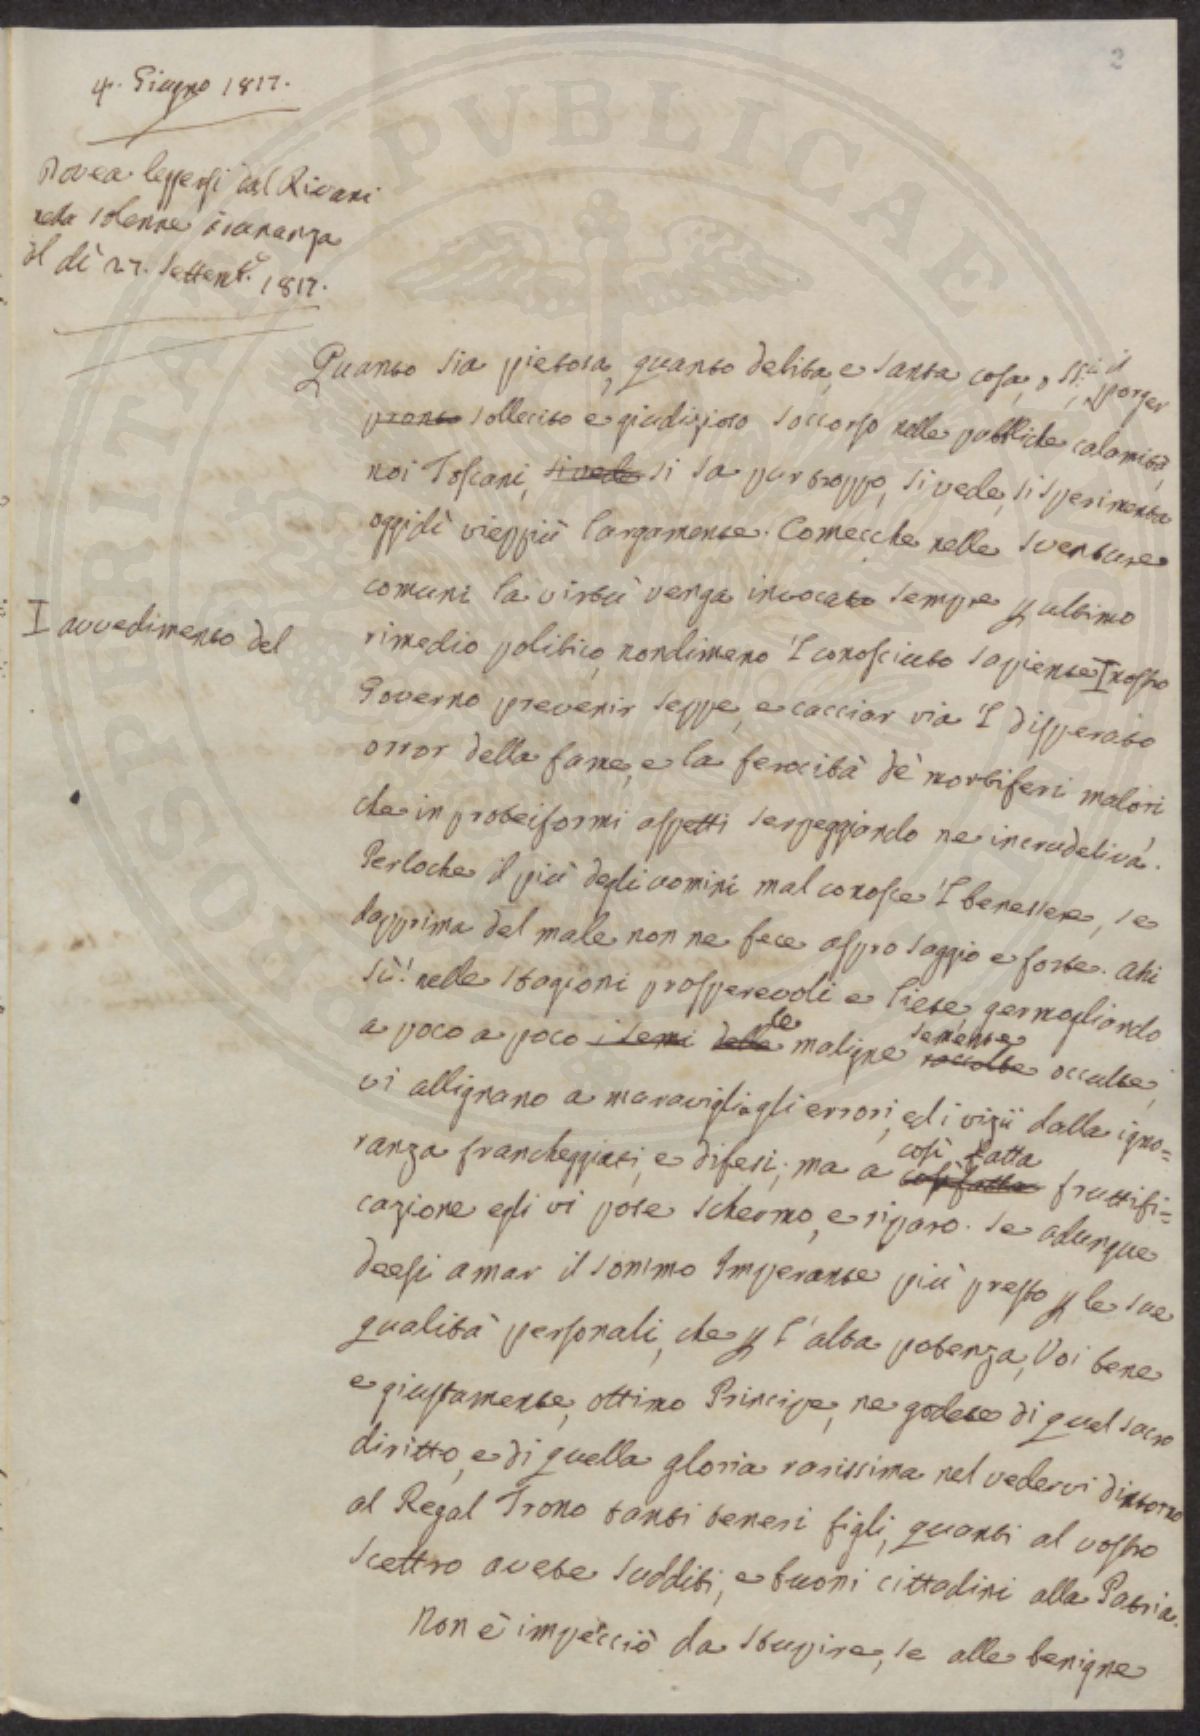 2
4. Giugno 1817.
Dovea leggersi dal Rivani
nella solenne adunanza
il dì 27. Settemb.e 1817.
Quanto sia pietosa, quanto debita, e santa cosa, o SS.i, il porger
pronto sollecito e giudizioso soccorso nelle pubbliche calamità,
noi Toscani, si vede si sa pur troppo, si vede, si sperimenta
oggidì vieppiù largamente. Comecche nelle sventure
comuni la virtù venga invocata sempre p ultimo
I avvedimento del
rimedio politico, nondimeno 'l conosciuto sapiente I nostro
Governo prevenir seppe, e cacciar via 'l disperato
orror della fame, e la ferocità de' morbiferi malori
che in proteiformi aspetti serpeggiando ne incrudeliva.
Perloche il più degli uomini mal conosce 'l benessere, se
dapprima del male non ne fece aspro saggio e forte. Ahi
sì! nelle stagioni prosperevoli e liete, germogliando
a poco a poco i semi delle le maligne raccolte semente occulte,
vi allignano a maraviglia gli errori, ed i vizii dalla igno=
ranza francheggiati, e difesi; ma a così fatta così fatta fruttifi=
cazione egli vi pose schermo, e riparo. Se adunque
deesi amar il sommo Imperante più presto p le sue
qualità personali, che p l'alta potenza, Voi bene
e giustamente, ottimo Principe, ne godete di quel sacro
diritto, e di quella gloria rarissima nel vedervi dintorno
al Regal Trono tanti teneri figli, quanti al vostro
scettro avete sudditi, e buoni cittadini alla Patria.
Non è imperciò da stupire, se alle benigne
PROSPERITATI PVBLICAE